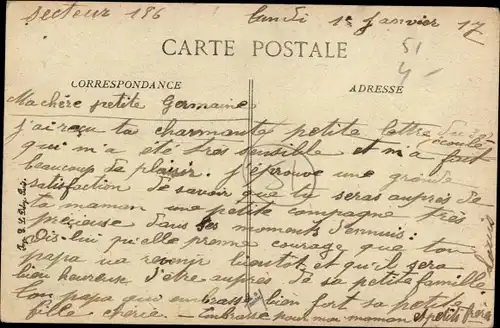 secteur 186 lundi 1e janvier 17
CARTE POSTALE
51
CORRESPONDANCE
ADRESSE
Ma chère petite Germaine
j'ai reçu ta charmante petite lettre
écoulé
qui m'a été très sensible et m'a fait
beaucoup de plaisir. j'éprouve une grande
satisfaction de savoir que tu seras auprès de
ta maman une petite compagne très
précieuse dans ses moments d'ennuis:
dis-lui qu'elle prenne courage que ton
papa va revenir bientot et qu'il sera
bien heureuse d'être auprès de sa petite famille
Ton papa qui embrasse bien fort sa petite
fille cherie — Embrasse pour moi maman et petits frère